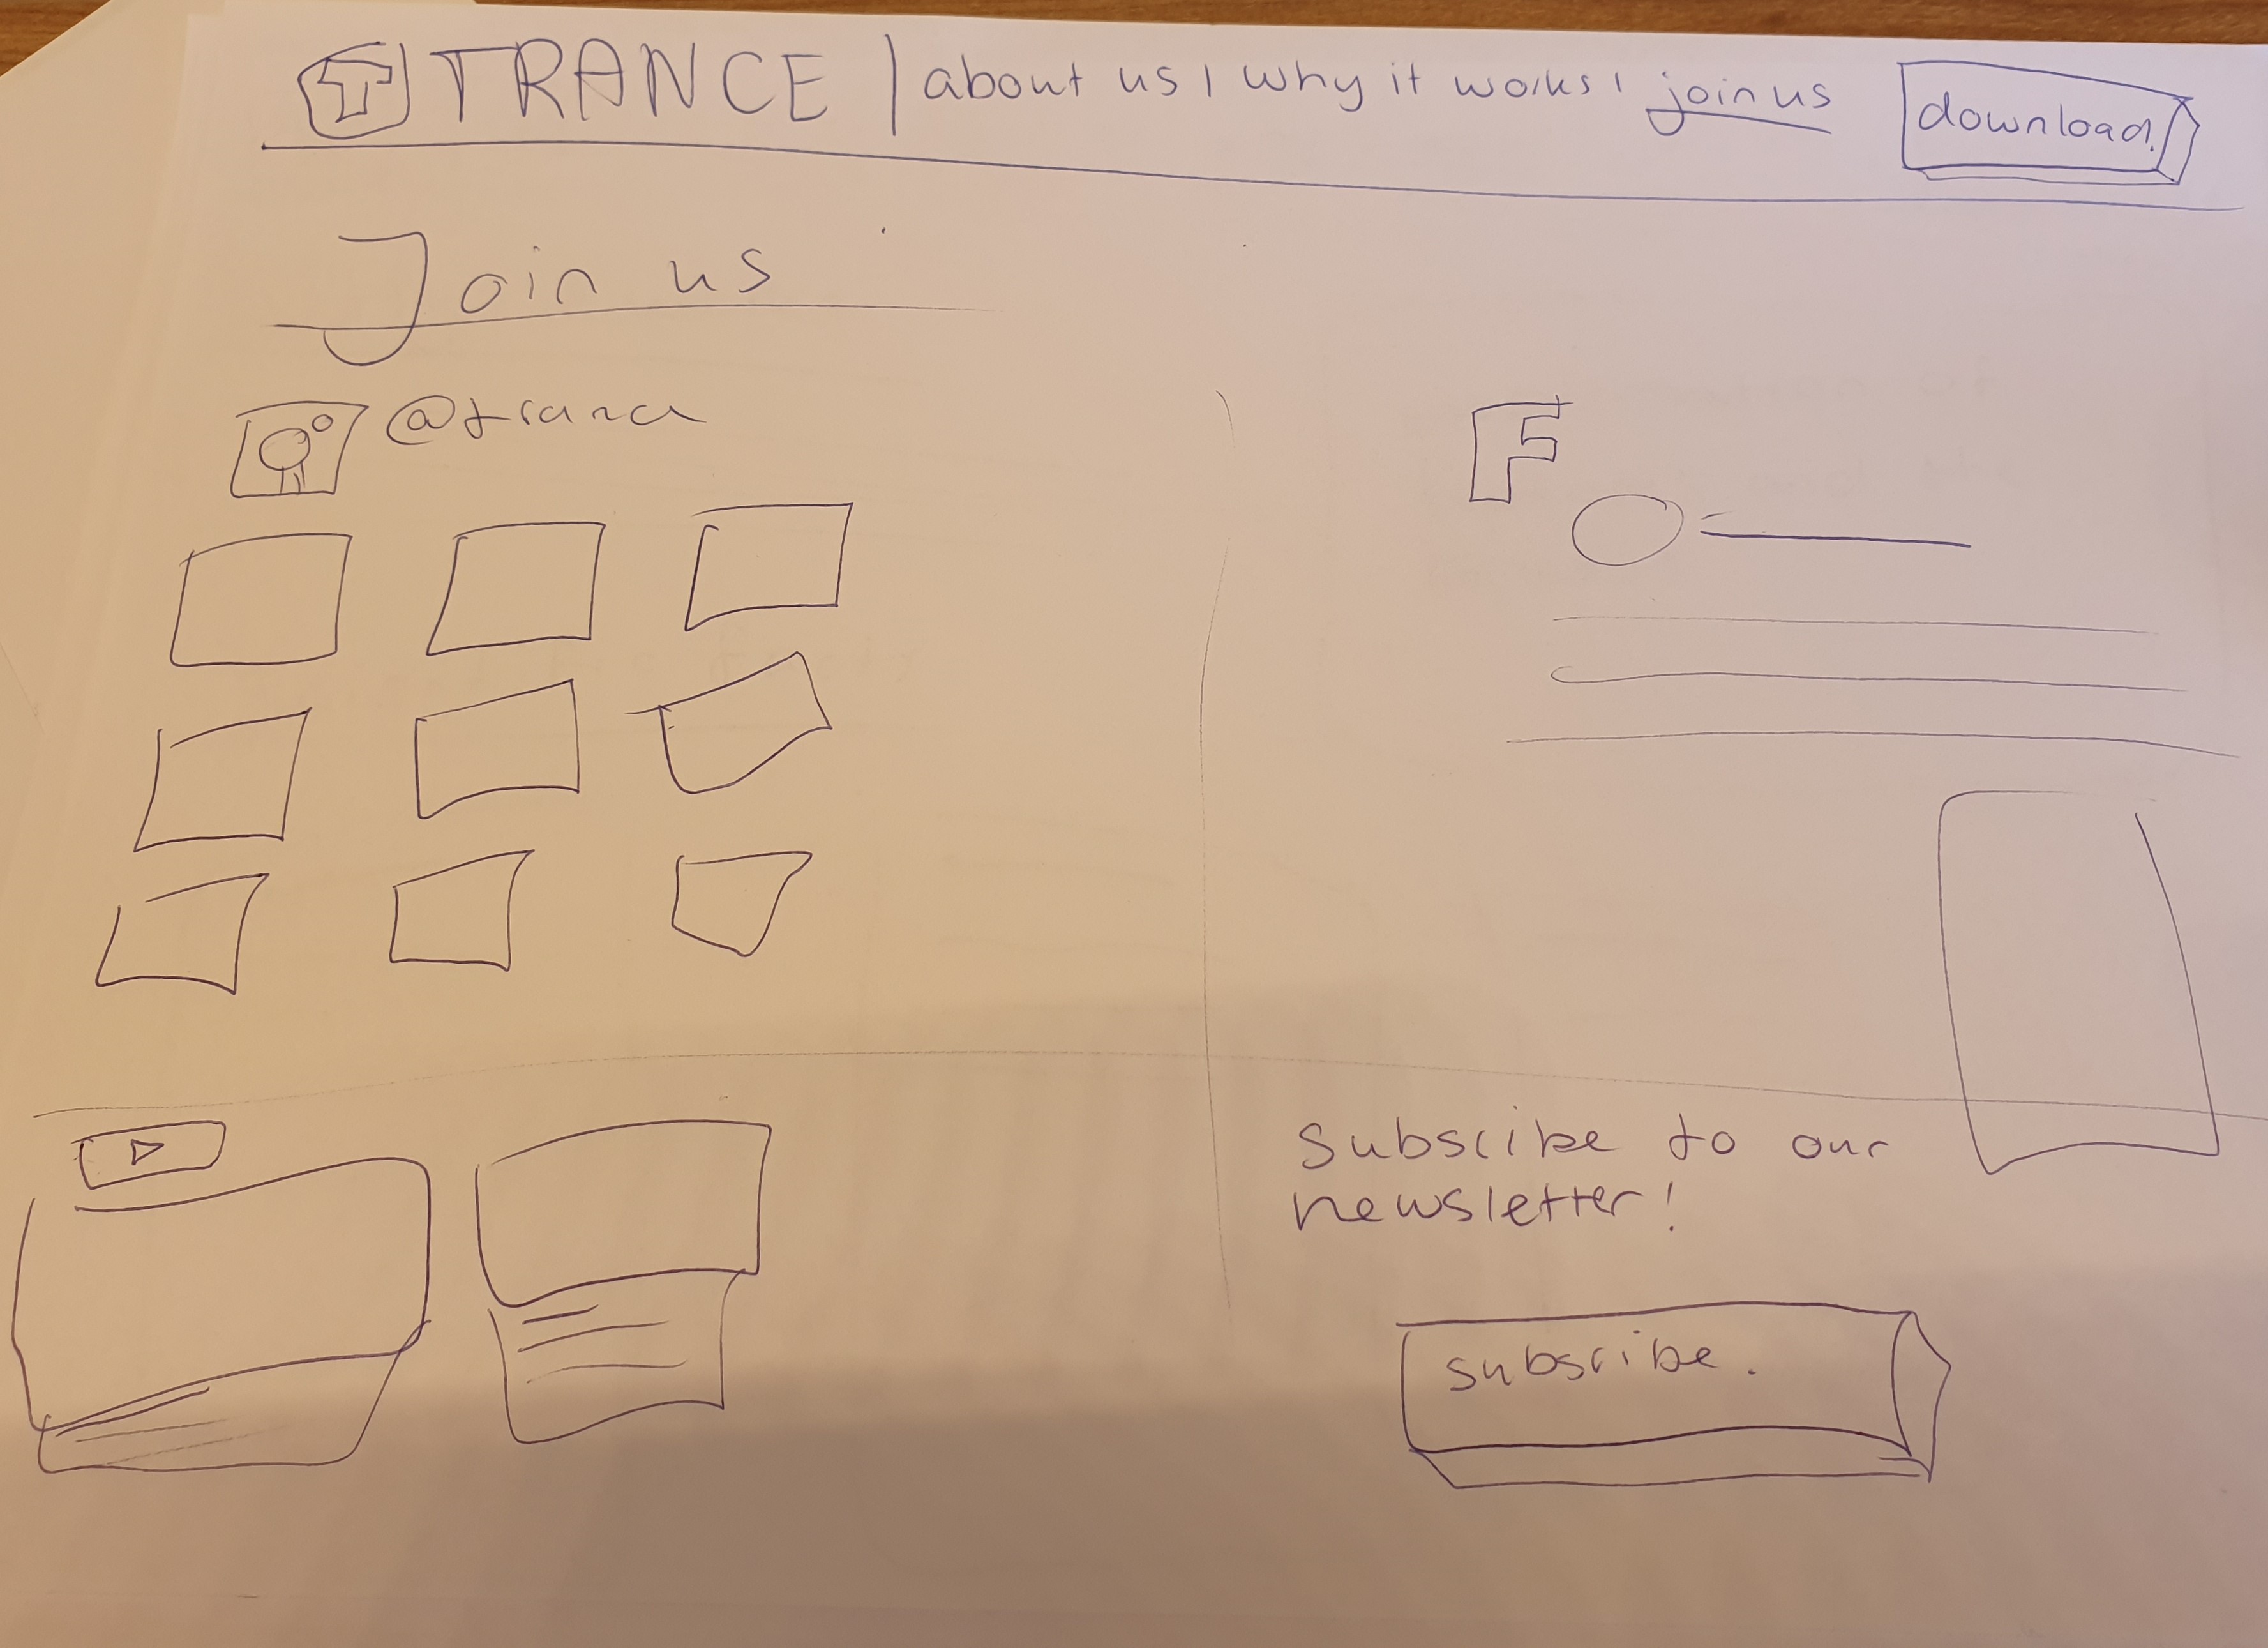 T TRANCE | about us | why it works | join us download
Join us
F
Subscribe to our
newsletter!
subscribe.